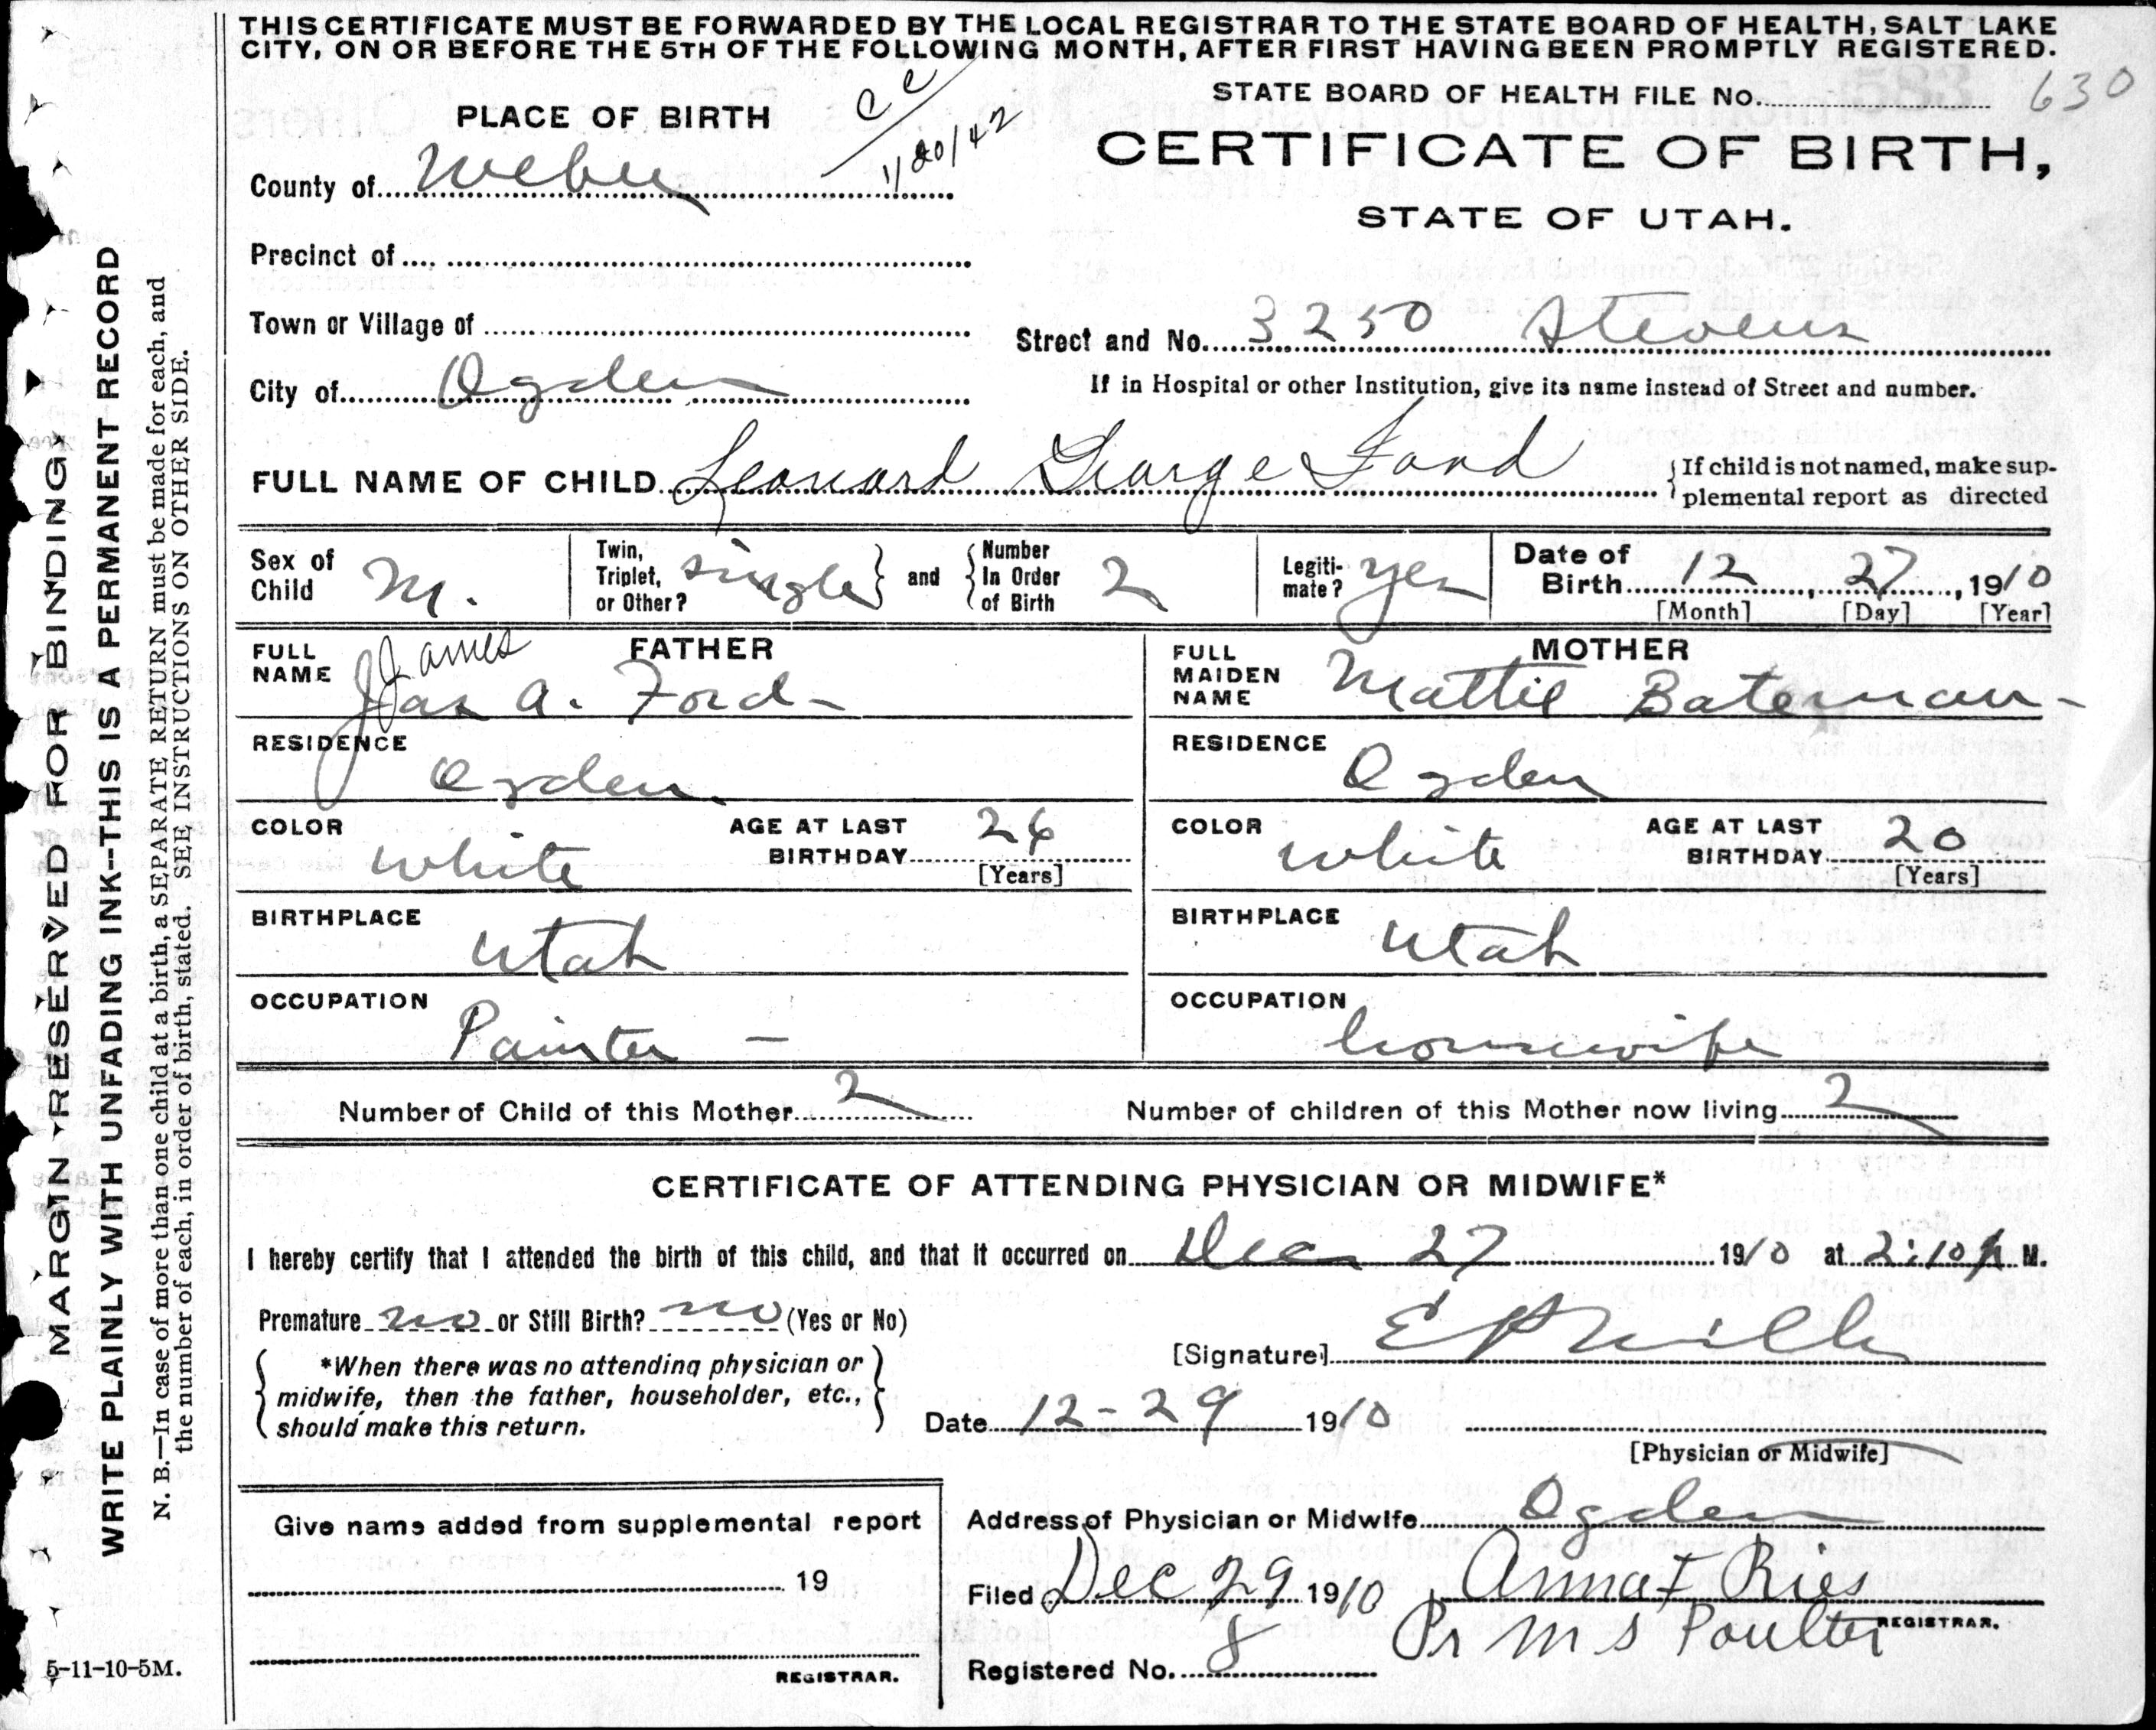 THIS CERTIFICATE MUST BE FORWARDED BY THE LOCAL REGISTRAR TO THE STATE BOARD OF HEALTH, SALT LAKE
CITY, ON OR BEFORE THE 5TH OF THE FOLLOWING MONTH, AFTER FIRST HAVING BEEN PROMPTLY REGISTERED.
STATE BOARD OF HEALTH FILE No. 630
PLACE OF BIRTH
cc
1/20/42
CERTIFICATE OF BIRTH,
STATE OF UTAH.
County of Weber
Precinct of
Town or Village of
Street and No. 3250 Stevens
City of Ogden
If in Hospital or other Institution, give its name instead of Street and number.
FULL NAME OF CHILD Leonard George Ford
{If child is not named, make sup-
plemental report as directed
Sex of Child M.
Twin, Triplet, or Other? single } and { Number In Order of Birth 2
Legiti-mate? yes
Date of Birth 12, 27, 1910
[Month] [Day] [Year]
FATHER
FULL NAME James
Jas A. Ford
RESIDENCE
Ogden
COLOR white AGE AT LAST BIRTHDAY 26
[Years]
BIRTHPLACE
Utah
OCCUPATION
Painter
MOTHER
FULL MAIDEN NAME Mattie Bateman
RESIDENCE
Ogden
COLOR white AGE AT LAST BIRTHDAY 20
[Years]
BIRTHPLACE
Utah
OCCUPATION
housewife
Number of Child of this Mother 2 Number of children of this Mother now living 2
CERTIFICATE OF ATTENDING PHYSICIAN OR MIDWIFE*
I hereby certify that I attended the birth of this child, and that it occurred on Dec 27 1910 at 2:10 p M.
Premature no or Still Birth? no (Yes or No)
*When there was no attending physician or
midwife, then the father, householder, etc.,
should make this return.
[Signature] E P Mills
Date 12-29 1910
[Physician or Midwife]
Give name added from supplemental report
19
REGISTRAR.
Address of Physician or Midwife Ogden
Filed Dec 29 1910 Anna F Ries
REGISTRAR.
Pr M S Poulter
Registered No. 8
MARGIN RESERVED FOR BINDING
WRITE PLAINLY WITH UNFADING INK--THIS IS A PERMANENT RECORD
N. B.—In case of more than one child at a birth, a SEPARATE RETURN must be made for each, and
the number of each, in order of birth, stated. SEE INSTRUCTIONS ON OTHER SIDE.
5-11-10-5M.